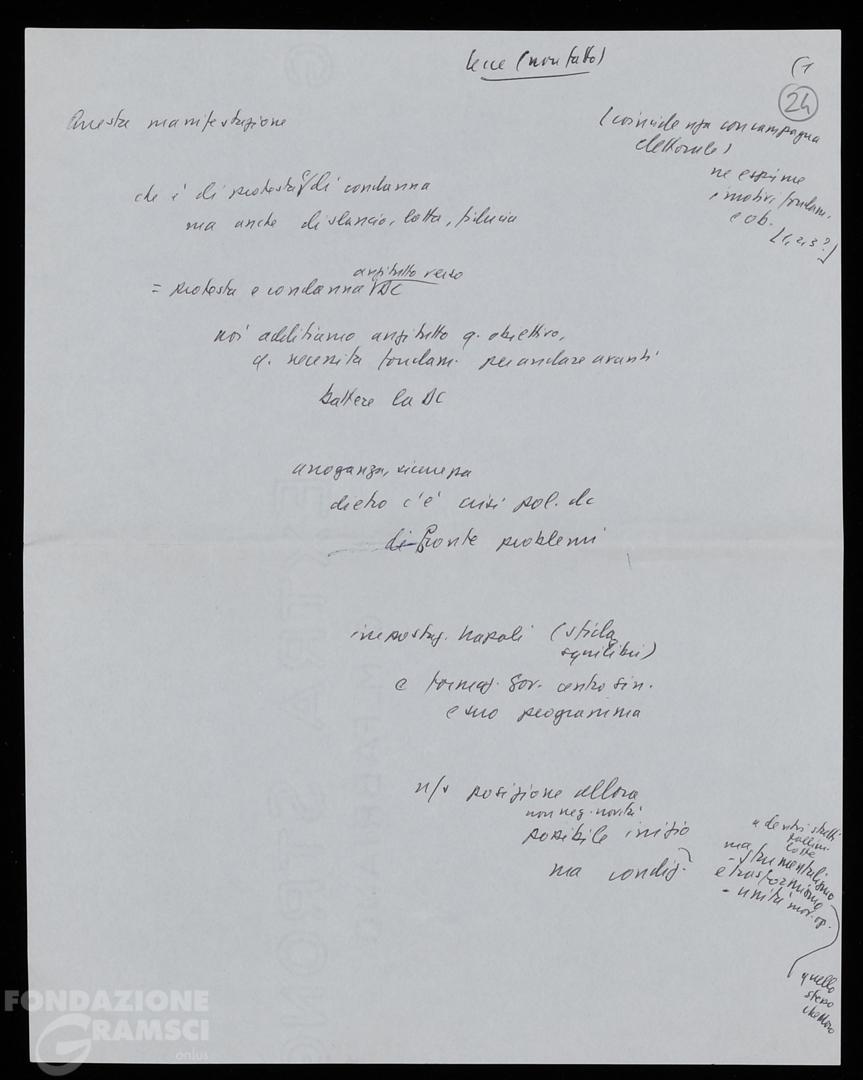 Lecce (non fatto)
(1
24
Questa manifestazione
(coincidenza con campagna
elettorale)
ne esprime
i motivi fondam.
e ob.
[1, 2, 3 ?]
che è di protesta e/di condanna
ma anche di slancio, lotta, fiducia
anzitutto verso
= protesta e condanna DC
noi additiamo anzitutto q. obiettivo,
q. necessità fondam. per andare avanti
battere la DC
arroganza, sicurezza
dietro c'è crisi pol. dc
di fronte problemi
impostaz. Napoli (sfida
squilibri)
e formaz. gov. centro sin.
e suo programma
n/s posizione allora
non neg. novità
possibile inizio
ma condiz.
ma
- strumentalismo
e trasformismo
- unità mov. op.
quello
stesso
FONDAZIONE
GRAMSCI
onlus